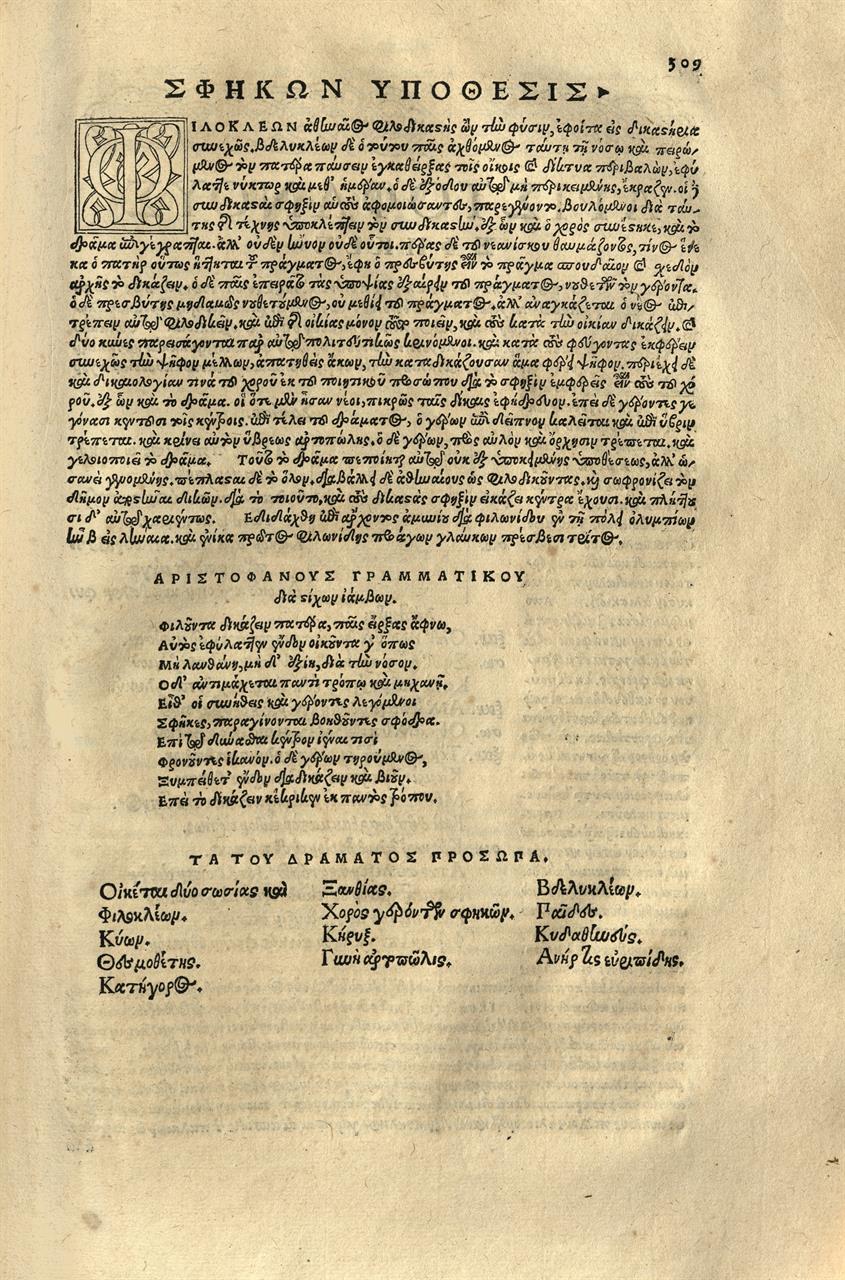 309
ΣΦΗΚΩΝ ΥΠΟΘΕΣΙΣ
ΦΙΛΟΚΛΕΩΝ ἀθηναῖος φιλοδικαστὴς ὢν τὴν φύσιν, ἐφοίτα εἰς δικαστήρια
συνεχῶς, Βδελυκλέων δὲ ὁ τούτου παῖς ἀχθόμενος ταύτῃ τῇ νόσῳ καὶ πειρώ-
μενος τὸν πατέρα παύσειν ἐγκαθείρξας τοῖς οἴκοις καὶ δίκτυα περιβαλὼν, ἐφύ
λαττε νύκτωρ καὶ μεθ' ἡμέραν. ὁ δὲ ἐξόδου αὐτῷ μὴ προκειμένης, ἔκραζεν. οἱ δὲ
συνδικασταὶ σφηξὶν αὑτοὺς ἀφομοιώσαντες, παρεγένοντο. Βουλόμενοι διὰ ταύ-
της τῆς τέχνης ὑποκλέπτειν τὸν συνδικαστήν. ἐξ ὧν καὶ ὁ χορὸς συνέστηκε, καὶ τὸ
δρᾶμα ἐπιγέγραπται. ἀλλ' οὐδὲν ἤνυον οὐδὲ οὗτοι. πέρας δὲ τοῦ νεανίσκου θαυμάζοντος, τίνος ἕνε
κα ὁ πατὴρ οὕτως ἥττηται τοῦ πράγματος, ἔφη ὁ πρεσβύτης εἶναι τὸ πρᾶγμα σπουδαῖον καὶ σχεδὸν
ἀρχῆς τὸ δικάζειν. ὁ δὲ παῖς ἐπειρᾶτο τὰς ὑποψίας ἐξαίρειν τοῦ πράγματος, νουθετῶν τὸν γέροντα.
ὁ δὲ πρεσβύτης μηδαμῶς νουθετούμενος, οὐ μεθίει τοῦ πράγματος. ἀλλ' ἀναγκάζεται ὁ νέος ἐπι-
τρέπειν αὐτῷ φιλοδικεῖν. καὶ ἐπὶ τῆς οἰκίας μόνον τοῦτο ποιεῖν, καὶ τοὺς κατὰ τὴν οἰκίαν δικάζειν. καὶ
δύο κύνες παρεισάγονται παρ' αὐτῷ πολιτευτικῶς κρινόμενοι. καὶ κατὰ τοῦ φεύγοντος ἐκφέρειν
συνεχῶς τὴν ψῆφον μέλλων, ἀπατηθεὶς ἄκων, τὴν καταδικάζουσαν ἅμα φέρει ψῆφον. περιέχει δὲ
καὶ δικαιολογίαν τινὰ τοῦ χοροῦ ἐκ τοῦ ποιητικοῦ προσώπου διὰ τὸ σφηξὶν ἐμφερεῖς εἶναι τοὺς τοῦ χο
ροῦ. ἐξ ὧν καὶ τὸ δρᾶμα. οἳ ὅτε μὲν ἦσαν νέοι, πικρῶς ταῖς δίκαις ἐφήδρευον. ἐπεὶ δὲ γέροντες γε
γόνασι κεντοῦσι τοῖς κέντροις. ἐπὶ τέλει τοῦ δράματος, ὁ γέρων ἐπὶ δεῖπνον καλεῖται καὶ ἐπὶ ὕβριν
τρέπεται. καὶ κρίνει αὐτὸν ὕβρεως ἀρτοπώλης. ὁ δὲ γέρων, πρὸς αὐλὸν καὶ ὄρχησιν τρέπεται. καὶ
γελοιοποιεῖ τὸ δρᾶμα. Τοῦτο τὸ δρᾶμα πεποίηται αὐτῷ οὐκ ἐξ ὑποκειμένης ὑποθέσεως, ἀλλ' ὡ-
σανεὶ γενομένης. πέπλασται δὲ τὸ ὅλον. διαβάλλει δὲ ἀθηναίους ὡς φιλοδικοῦντας. καὶ σωφρονίζει τὸν
δῆμον ἀποστῆναι δικῶν. διὰ τὸ τοιοῦτο, καὶ τοὺς δικαστὰς σφηξὶν εἰκάζει κέντρα ἔχουσι. καὶ πλήττου
σι δ' αὐτῷ χαριέντως. Εδιδάχθη ἐπὶ ἄρχοντος ἀμυνίου διὰ φιλωνίδου ἐν τῇ πόλει ὀλυμπίων
ἣν Β εἰς λήναια. καὶ ἐνίκα πρῶτος φιλωνίδης προάγων γλαύκων πρέσβεσι τρίτος.
ΑΡΙΣΤΟΦΑΝΟΥΣ ΓΡΑΜΜΑΤΙΚΟΥ
διὰ στίχων ἰάμβων.
Φιλοῦντα δικάζειν πατέρα, παῖς εἵρξας ἄφνω,
Αὐτὸς ἐφύλαττεν ἔνδον οἰκοῦντα γ' ὅπως
Μὴ λανθάνῃ, μὴ δ' ἐξίῃ, διὰ τὴν νόσον.
Ο δ' ἀντιμάχεται παντὶ τρόπῳ καὶ μηχανῇ.
Εἶθ' οἱ συνήθεις καὶ γέροντες λεγόμενοι
Σφῆκες, παραγίνονται βοηθοῦντες σφόδρα.
Επὶ τῷ δύνασθαι κέντρον ἐνιέναι τισὶ
Φρονοῦντες ἱκανόν. ὁ δὲ γέρων τηρούμενος,
Ξυμπείθετ' ἔνδον διαδικάζειν καὶ βιοῦν.
Επεὶ τὸ δικάζειν κέκρικεν ἐκ παντὸς τρόπου.
ΤΑ ΤΟΥ ΔΡΑΜΑΤΟΣ ΠΡΟΣΩΠΑ.
Οἰκέται δύο σωσίας καὶ Ξανθίας. Βδελυκλέων.
Φιλοκλέων. Χορὸς γερόντων σφηκῶν. Παῖδες.
Κύων. Κήρυξ. Κυδαθηνεύς.
Θεσμοθέτης. Γυνὴ ἀρτοπῶλις. Ανήρ τις εὐριπίδης.
Κατήγορος.